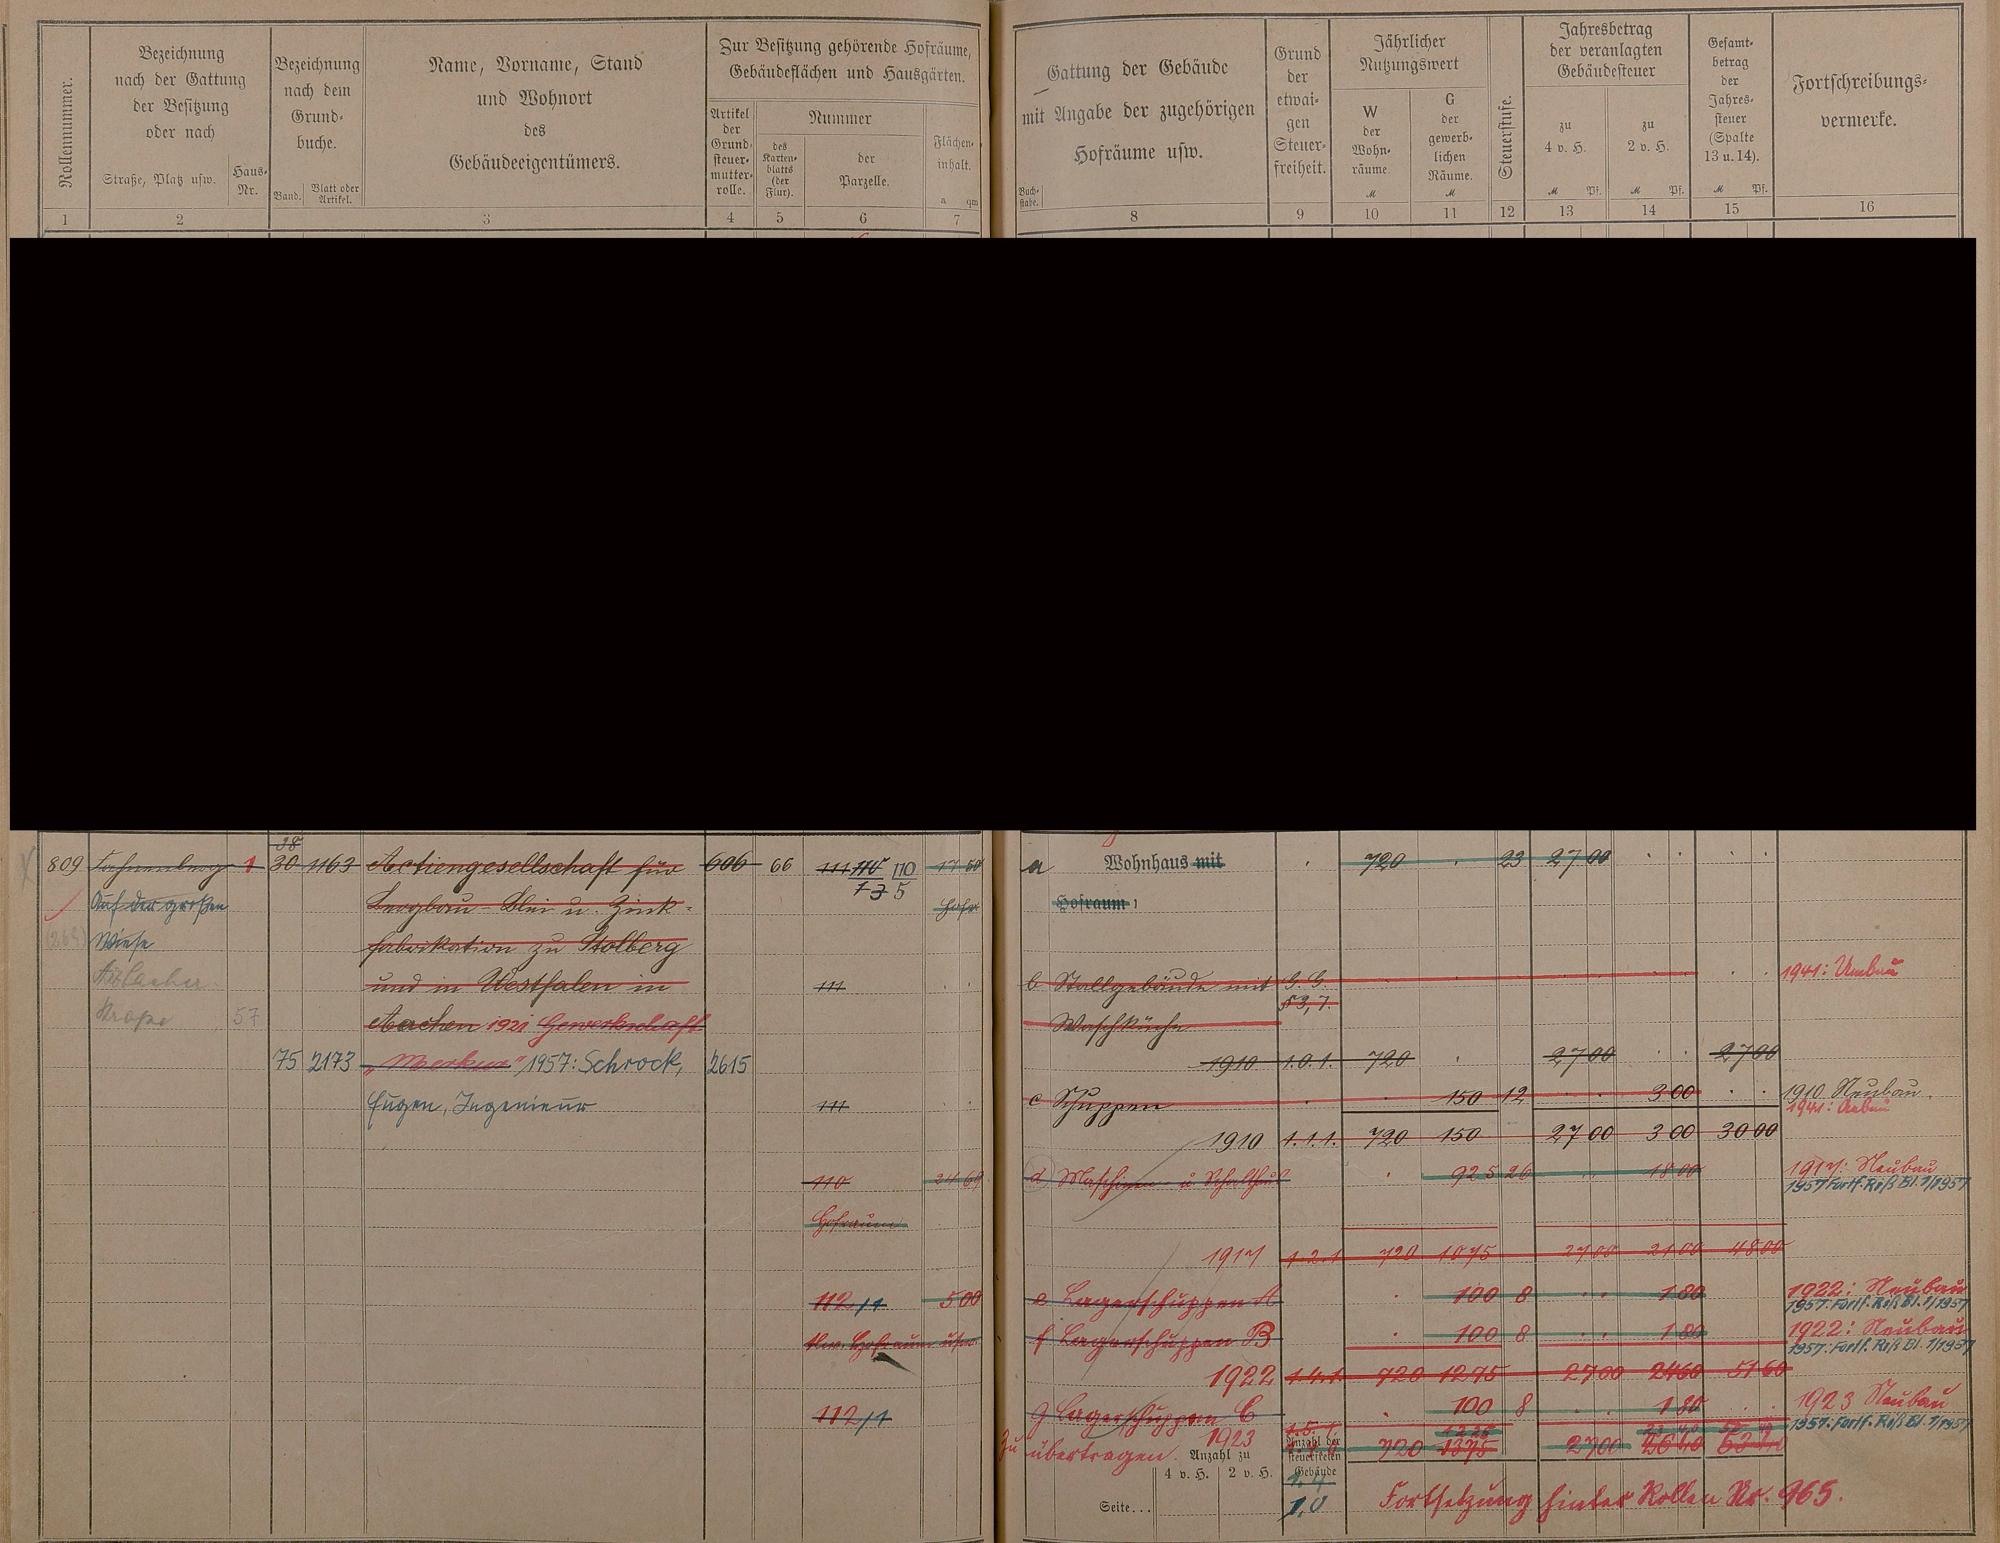 Rollennummer.
Bezeichnung
nach der Gattung
der Besitzung
oder nach
Straße, Platz usw.
Haus-
Nr.
Bezeichnung
nach dem
Grund-
buche.
Band.
Blatt oder
Artikel.
Name, Vorname, Stand
und Wohnort
des
Gebäudeeigentümers.
Zur Besitzung gehörende Hofräume,
Gebäudeflächen und Hausgärten.
Artikel
der
Grund-
steuer-
mutter-
rolle.
Nummer
des
Karten-
blatts
(der
Flur).
der
Parzelle.
Flächen-
inhalt.
a qm
Gattung der Gebäude
mit Angabe der zugehörigen
Hofräume usw.
Buch-
stabe.
Grund
der
etwai-
gen
Steuer-
freiheit.
Jährlicher
Nutzungswert
W
der
Wohn-
räume.
M
G
der
gewerb-
lichen
Räume.
M
Steuerstufe.
Jahresbetrag
der veranlagten
Gebäudesteuer
zu
4 v. H.
M Pf.
zu
2 v. H.
M Pf.
Gesamt-
betrag
der
Jahres-
steuer
(Spalte
13 u. 14).
M Pf.
Fortschreibungs-
vermerke.
1 2 3 4 5 6 7 8 9 10 11 12 13 14 15 16
38
809 1 30 1163 Actiengesellschaft für 606 66 111 110 110/5 17 60 a Wohnhaus mit 720 23 27 00
Auf der großen Bergbau- Blei u. Zink- Hofr. Hofraum
Wiese fabrikation zu Stolberg
und in Westfalen in 111 b Stallgebäude mit G.G. 1941: Umbau
§3,7.
57 Aachen 1921 Gewerkschaft Waschküche
75 2173 „Merkur" 1957: Schrock, 2615 1910 1.0.1. 720 27 00 27 00
Eugen, Ingenieur 111 c Schuppen 150 12 3 00 1910 Neubau.
1941:
1910 1.1.1. 720 150 27 00 3 00 30 00
110 24 69 d Maschinen- u. Schalthaus 925 26 18 00 1917: Neubau
1957 Fortf. Riß Bl. 1/1957
Hofraum
1917 1.2.1 720 1075 27 00 21 00 48 00
112/1 5 00 e Lagerschuppen A 100 8 1 80 1922: Neubau
1957: Fortf. Riß Bl. 1/1957
Hofraum usw. f Lagerschuppen B 100 8 1 80 1922: Neubau
1957: Fortf. Riß Bl. 1/1957
1922 1.4.1 720 1275 27 00 24 60 51 60
112/1 g Lagerschuppen C 100 8 1 80 1923 Neubau
1957: Fortf. Riß Bl. 1/1957
1.5.1
zu übertragen. 1923 720 1375 27 00
Anzahl zu
4 v. H. 2 v. H.
Anzahl der
steuerfreien
Gebäude
1.4
1.0
Seite...
Fortsetzung hinter Rollen Nr. 965.